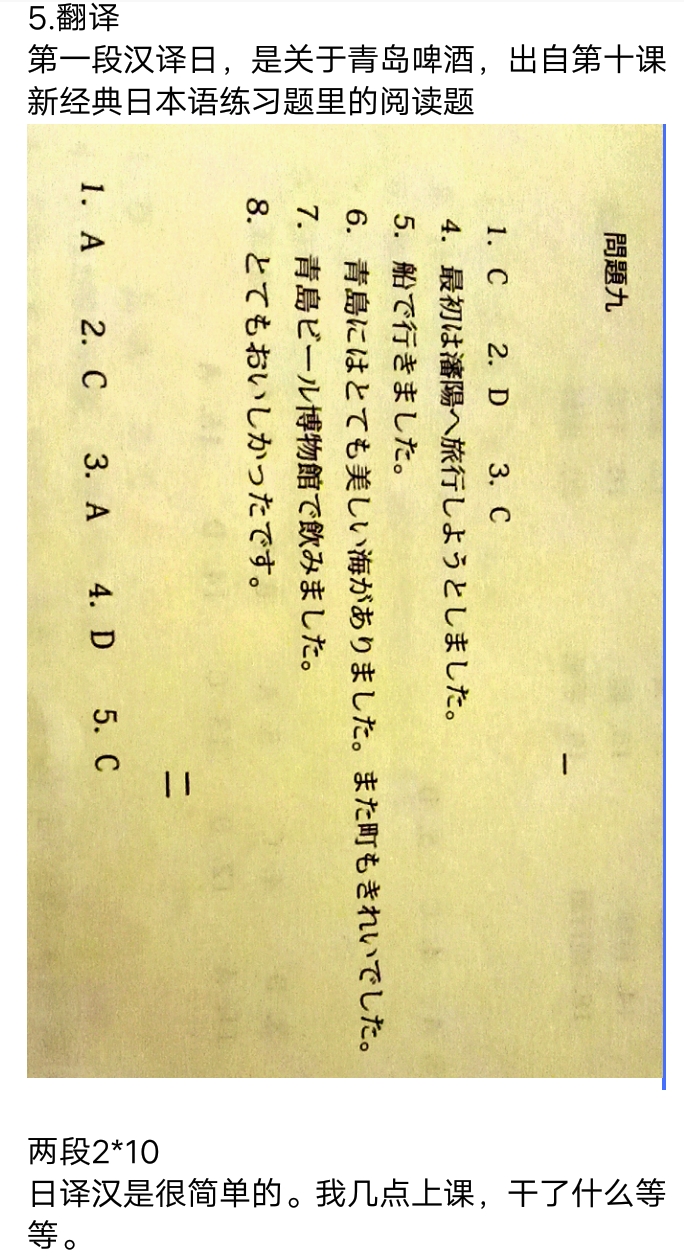 5.翻译
第一段汉译日，是关于青岛啤酒，出自第十课
新经典日本语练习题里的阅读题
問題九
一
1. C  2. D  3. C
4. 最初は瀋陽へ旅行しようとしました。
5. 船で行きました。
6. 青島にはとても美しい海がありました。また町もきれいでした。
7. 青島ビール博物館で飲みました。
8. とてもおいしかったです。
二
1. A  2. C  3. A  4. D  5. C
两段2*10
日译汉是很简单的。我几点上课，干了什么等
等。